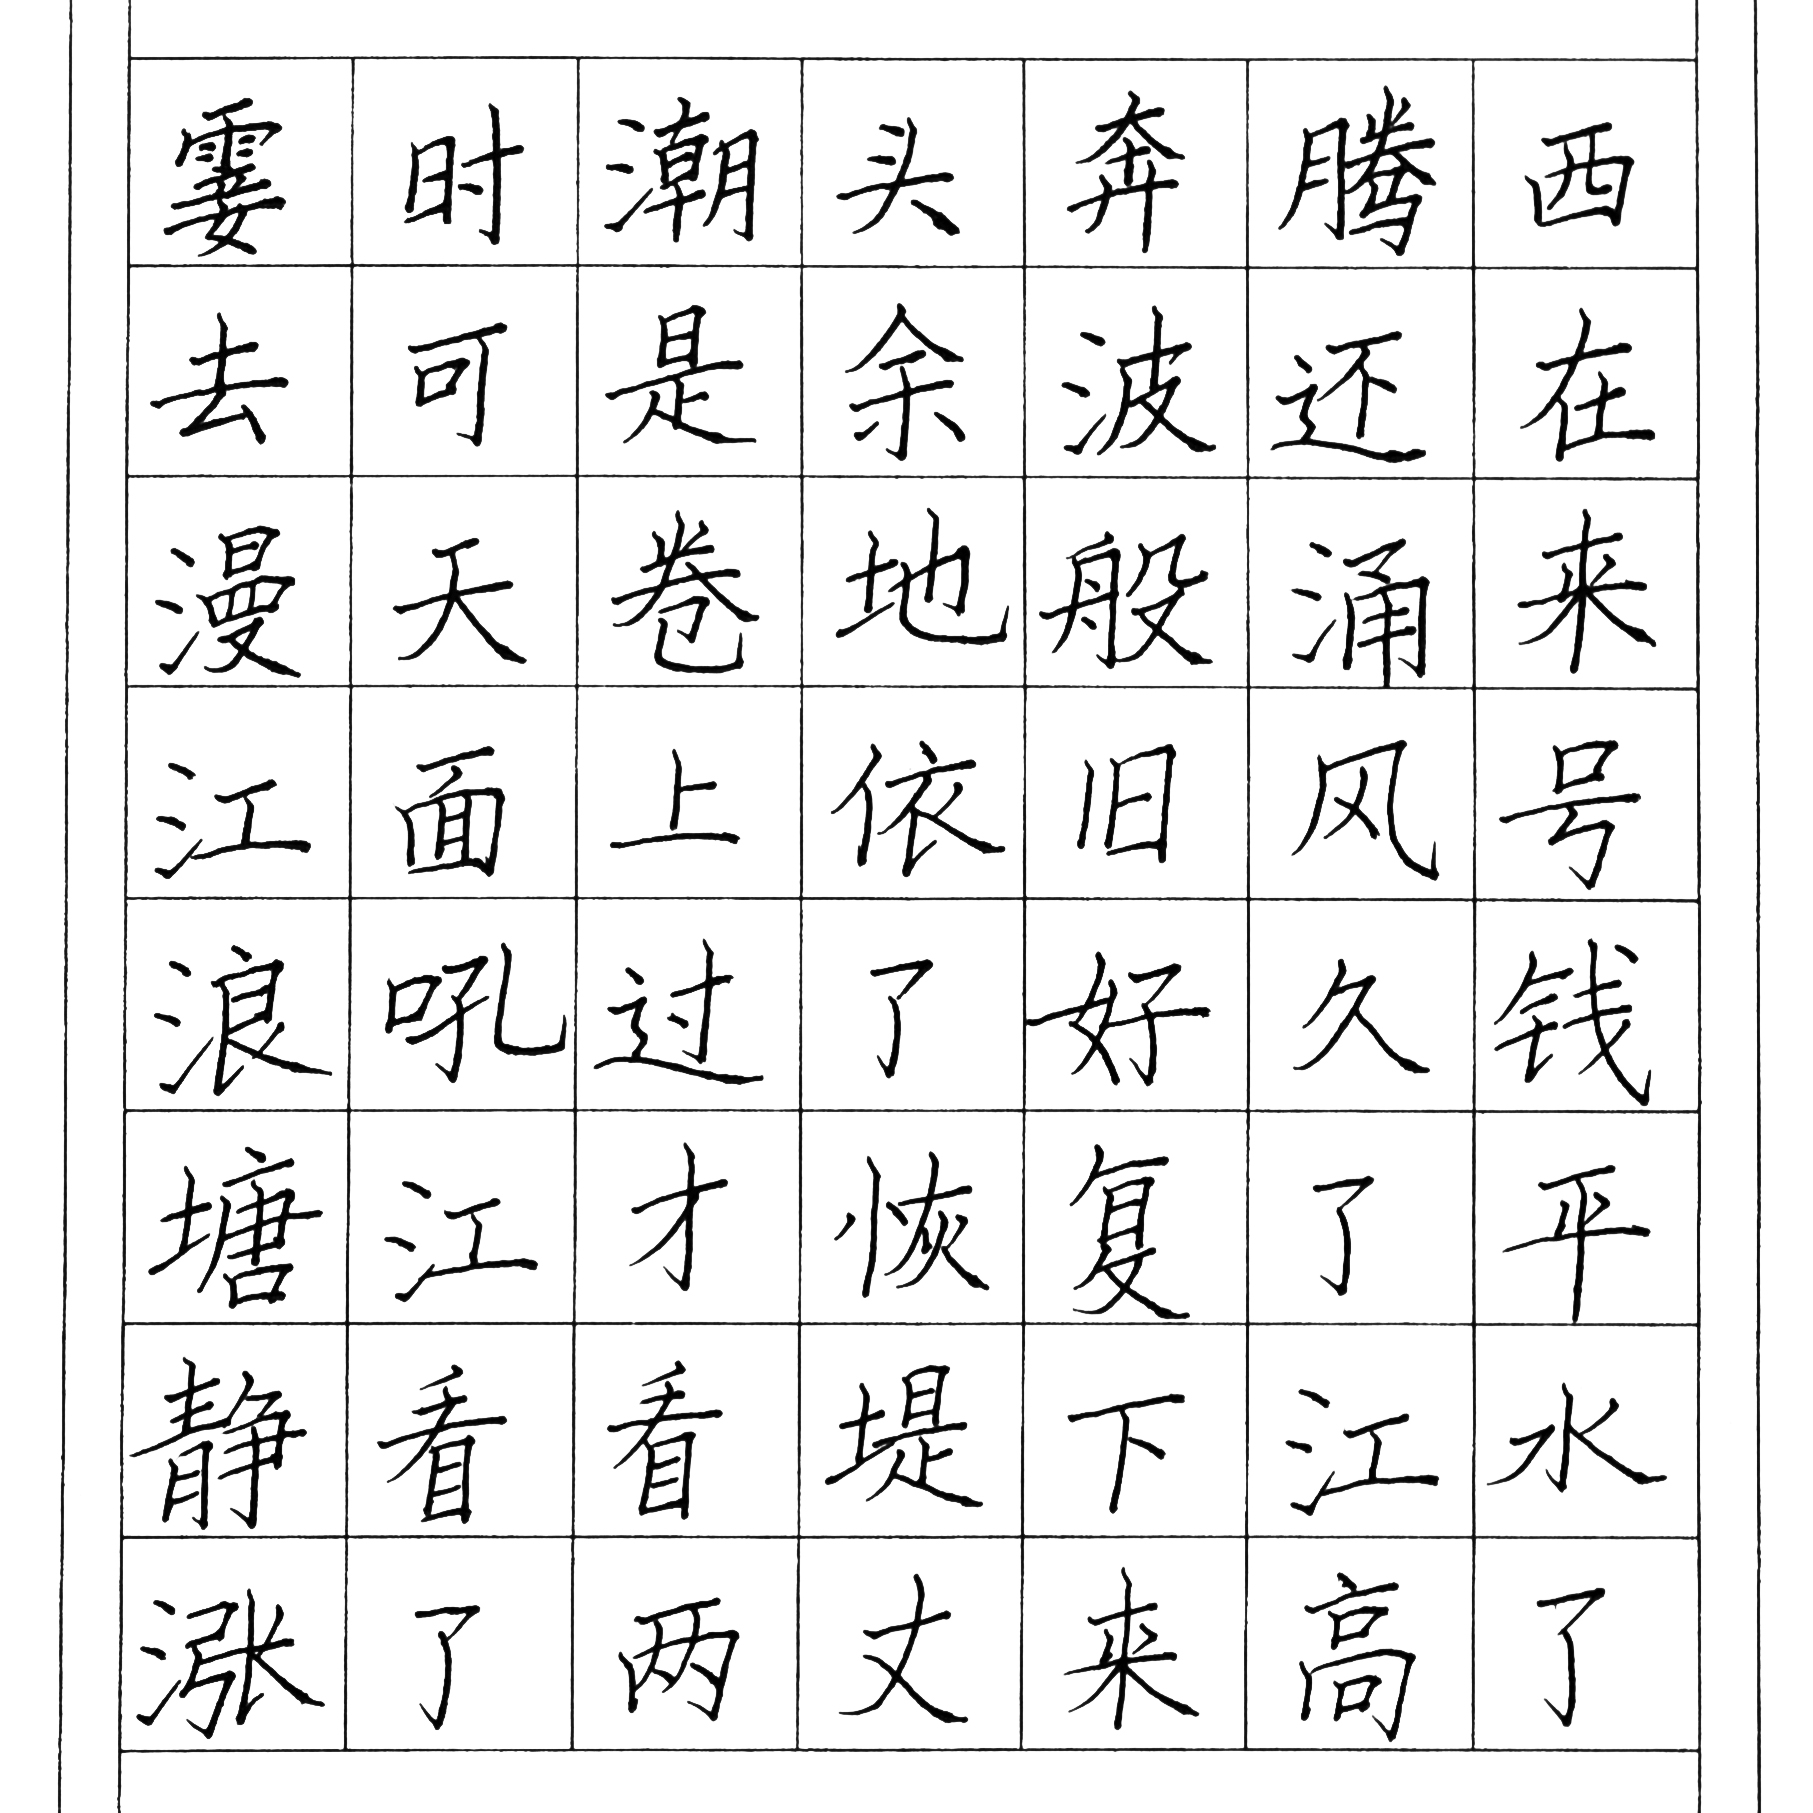 霎时潮头奔腾西
去可是余波还在
漫天卷地般涌来
江面上依旧风号
浪吼过了好久钱
塘江才恢复了平
静看看堤下江水
涨了两丈来高了